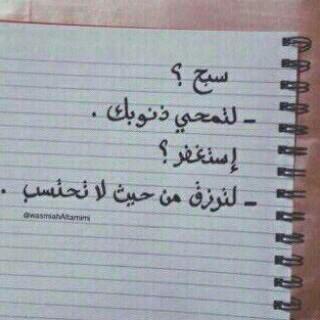 سبح ؟
- لتمحي ذنوبك .
إستغفر ؟
- لترزق من حيث لا تحتسب .
@wasmiahAltamimi